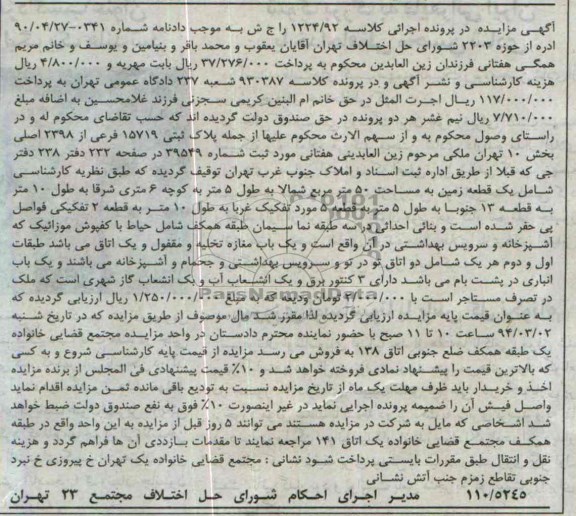 آگهی مزایده در پرونده اجرائی کلاسه ۱۲۲۴/۹۲ را ج ش به موجب دادنامه شماره ۰۳۴۱-۹۰/۰۴/۲۷
ادره از حوزه ۲۲۰۳ شورای حل اختلاف تهران آقایان یعقوب و محمد باقر و بنیامین و یوسف و خانم مریم
همگی هفتانی فرزندان زین العابدین محکوم به پرداخت ۳۷/۲۷۶/۰۰۰ ریال بابت مهریه و ۴/۸۰۰/۰۰۰ ریال
هزینه کارشناسی و نشر آگهی و در پرونده کلاسه ۹۳۰۳۸۷ شعبه ۲۳۷ دادگاه عمومی تهران به پرداخت
۱۱۷/۰۰۰/۰۰۰ ریال اجرت المثل در حق خانم ام البنین کریمی سجزنی فرزند غلامحسین به اضافه مبلغ
۷/۷۱۰/۰۰۰ ریال نیم عشر هر دو پرونده در حق صندوق دولت گردیده اند که حسب تقاضای محکوم له و در
راستای وصول محکوم به و از سهم الارث محکوم علیها از جمله پلاک ثبتی ۱۵۷۱۹ فرعی از ۲۳۹۸ اصلی
بخش ۱۰ تهران ملکی مرحوم زین العابدینی هفتانی مورد ثبت شماره ۳۹۵۴۹ در صفحه ۲۳۲ دفتر ۲۳۸ دفتر
جی که قبلا از طریق اداره ثبت اسناد و املاک جنوب غرب تهران توقیف گردیده که طبق نظریه کارشناسی
شامل یک قطعه زمین به مساحت ۵۰ متر مربع شمالا به طول ۵ متر به کوچه ۶ متری شرقا به طول ۱۰ متر
به قطعه ۱۳ جنوبا به طول ۵ متر به قطعه ۵ مورد تفکیک غربا به طول ۱۰ متر به قطعه ۲ تفکیکی فواصل
پی حفر شده است و بنائی احداثی در سه طبقه نما سیمان طبقه همکف شامل حیاط با کفپوش موزائیک که
آشپزخانه و سرویس بهداشتی در آن واقع است و یک باب مغازه تخلیه و مقفول و یک اتاق می باشد طبقات
اول و دوم هر یک شامل دو اتاق تو در تو و سرویس بهداشتی و حمام و آشپزخانه می باشند و یک باب
انباری در پشت بام می باشد دارای ۳ کنتور برق و یک انشعاب آب و یک انشعاب گاز شهری است که ملک
در تصرف مستاجر است با ریال ودیعه که به مبلغ ریال ارزیابی گردیده که
به عنوان قیمت پایه مزایده ارزیابی گردیده لذا مقرر شد مال موصوف از طریق مزایده که در تاریخ شنبه
۹۴/۰۳/۰۲ ساعت ۱۰ تا ۱۱ صبح با حضور نماینده محترم دادستان در واحد مزایده مجتمع قضایی خانواده
یک طبقه همکف ضلع جنوبی اتاق ۱۳۸ به فروش می رسد مزایده از قیمت پایه کارشناسی شروع و به کسی
که بالاترین قیمت را پیشنهاد نمادی فروخته خواهد شد و ۱۰٪ قیمت پیشنهادی فی المجلس از برنده مزایده
اخذ و خریدار باید ظرف مهلت یک ماه از تاریخ مزایده نسبت به تودیع باقی مانده ثمن مزایده اقدام نماید
واصل فیش آن را ضمیمه پرونده اجرایی نماید در غیر اینصورت ۱۰٪ فوق به نفع صندوق دولت ضبط خواهد
شد اشخاصی که مایل به شرکت در مزایده هستند می توانند ۵ روز قبل از مزایده به این واحد واقع در طبقه
همکف مجتمع قضایی خانواده یک اتاق ۱۴۱ مراجعه نمایند تا مقدمات بازدیدی آن ها فراهم گردد و هزینه
نقل و انتقال طبق مقررات بایستی پرداخت شود نشانی : مجتمع قضایی خانواده یک تهران خ پیروزی خ نبرد
جنوبی تقاطع زمزم جنب آتش نشانی
۱۱۰/۵۲۴۵ مدیر اجرای احکام شورای حل اختلاف مجتمع ۲۳ تهران